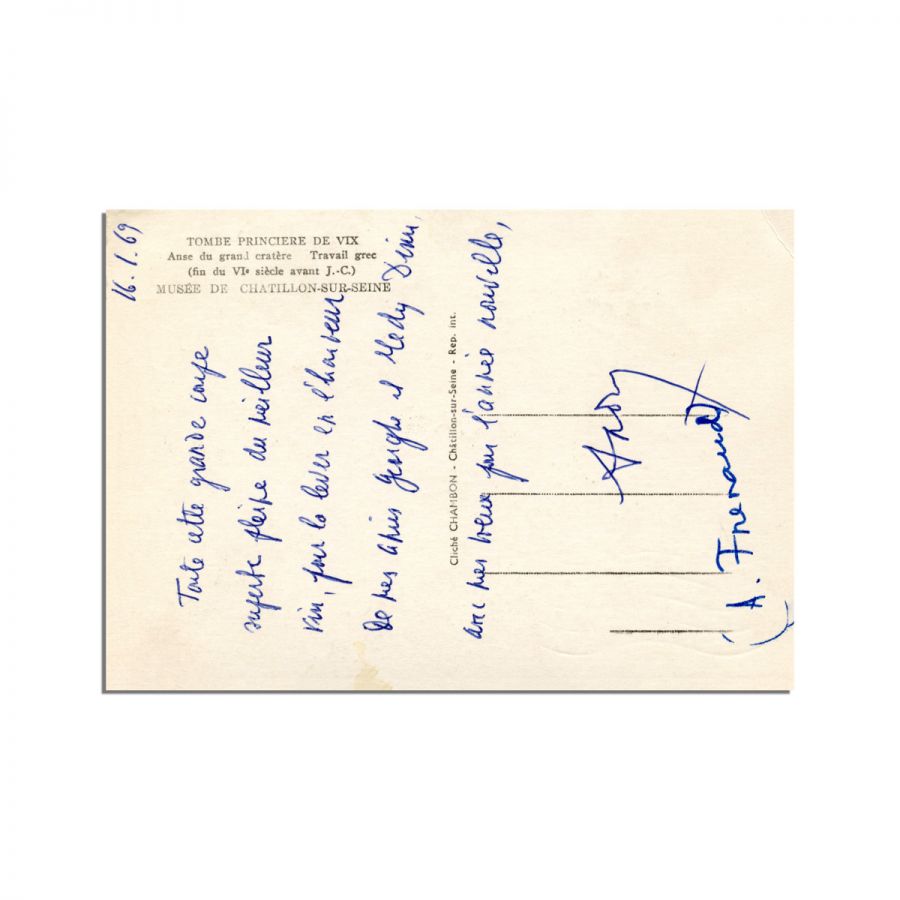 TOMBE PRINCIERE DE VIX
Anse du grand cratère Travail grec
(fin du VIe siècle avant J.-C.)
MUSÉE DE CHATILLON-SUR-SEINE
16.1.69
Toute cette grande coupe
superbe pleine du meilleur
vin, pour la lever en l'honneur
de mes amis Georghe et Medy Dinu,
avec mes vœux pour l'année nouvelle,
Cliché CHAMBON - Châtillon-sur-Seine - Rep. int.
(A. Frenaud)